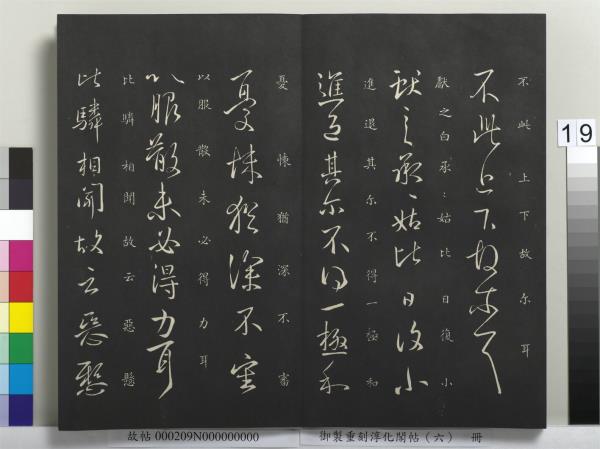 不此上下故尔耳
不此上下故尔耳
獻之白承：姑比日復小
獻之白承：姑比日復小
進退其尔不得一極和
進退其尔不得一極和
憂悚猶深不審
憂悚猶深不審
以服散未必得力耳
以服散未必得力耳
比驎相聞故云惡懸
比驎相聞故云惡懸
19
故帖 000209N000000000
御製重刻淳化閣帖（六） 冊